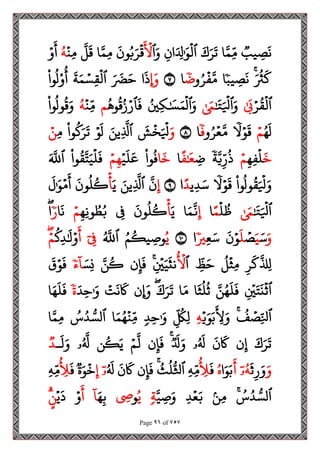 نَصِيبٞ مِّمَّا تَرَكَ ٱلۡوَٰلِدَانِ وَٱلۡأَقۡرَبُونَ مِمَّا قَلَّ مِنۡهُ أَوۡ
كَثُرَۚ نَصِيبٗا مَّفۡرُوضٗا ٧ وَإِذَا حَضَرَ ٱلۡقِسۡمَةَ أُوْلُواْ
ٱلۡقُرۡبَىٰ وَٱلۡيَتَٰمَىٰ وَٱلۡمَسَٰكِينُ فَٱرۡزُقُوهُم مِّنۡهُ وَقُولُواْ
لَهُمۡ قَوۡلٗا مَّعۡرُوفٗا ٨ وَلۡيَخۡشَ ٱلَّذِينَ لَوۡ تَرَكُواْ مِنۡ
خَلۡفِهِمۡ ذُرِّيَّةٗ ضِعَٰفًا خَافُواْ عَلَيۡهِمۡ فَلۡيَتَّقُواْ ٱللَّهَ
وَلۡيَقُولُواْ قَوۡلٗا سَدِيدًا ٩ إِنَّ ٱلَّذِينَ يَأۡكُلُونَ أَمۡوَٰلَ
ٱلۡيَتَٰمَىٰ ظُلۡمًا إِنَّمَا يَأۡكُلُونَ فِي بُطُونِهِمۡ نَارٗاۖ
وَسَيَصۡلَوۡنَ سَعِيرٗا ١٠ يُوصِيكُمُ ٱللَّهُ فِيٓ أَوۡلَٰدِكُمۡۖ
لِلذَّكَرِ مِثۡلُ حَظِّ ٱلۡأُنثَيَيۡنِۚ فَإِن كُنَّ نِسَآءٗ فَوۡقَ
ٱثۡنَتَيۡنِ فَلَهُنَّ ثُلُثَا مَا تَرَكَۖ وَإِن كَانَتۡ وَٰحِدَةٗ فَلَهَا
ٱلنِّصۡفُۚ وَلِأَبَوَيۡهِ لِكُلِّ وَٰحِدٖ مِّنۡهُمَا ٱلسُّدُسُ مِمَّا
تَرَكَ إِن كَانَ لَهُۥ وَلَدٞۚ فَإِن لَّمۡ يَكُن لَّهُۥ وَلَدٞ
وَوَرِثَهُۥٓ أَبَوَاهُ فَلِأُمِّهِ ٱلثُّلُثُۚ فَإِن كَانَ لَهُۥٓ إِخۡوَةٞ فَلِأُمِّهِ
ٱلسُّدُسُۚ مِنۢ بَعۡدِ وَصِيَّةٖ يُوصِي بِهَآ أَوۡ دَيۡنٍۗ
Page ٩٦ of ٧٥٧